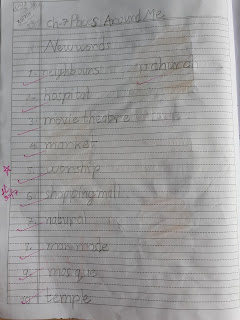 Ch-7 Places Around Me
New words
1. neighbours 11. church
2. hospital
3. movie theatre
4. market
5. worship
6. shopping mall
7. natural
8. manmade
9. mosque
10. temple